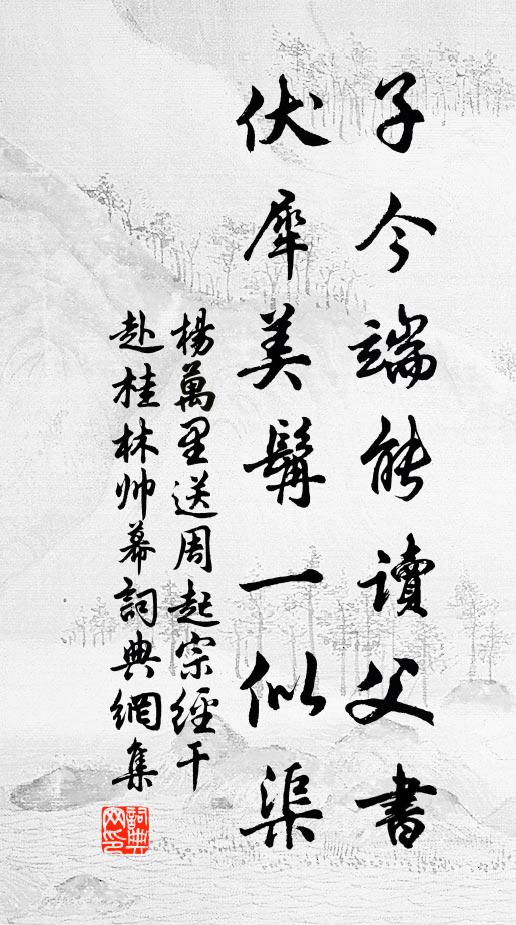 子今端能读父書
伏犀美髯一似渠
楊萬里送周起宗經干
赴桂林帅幕詞典網集
詞典网印